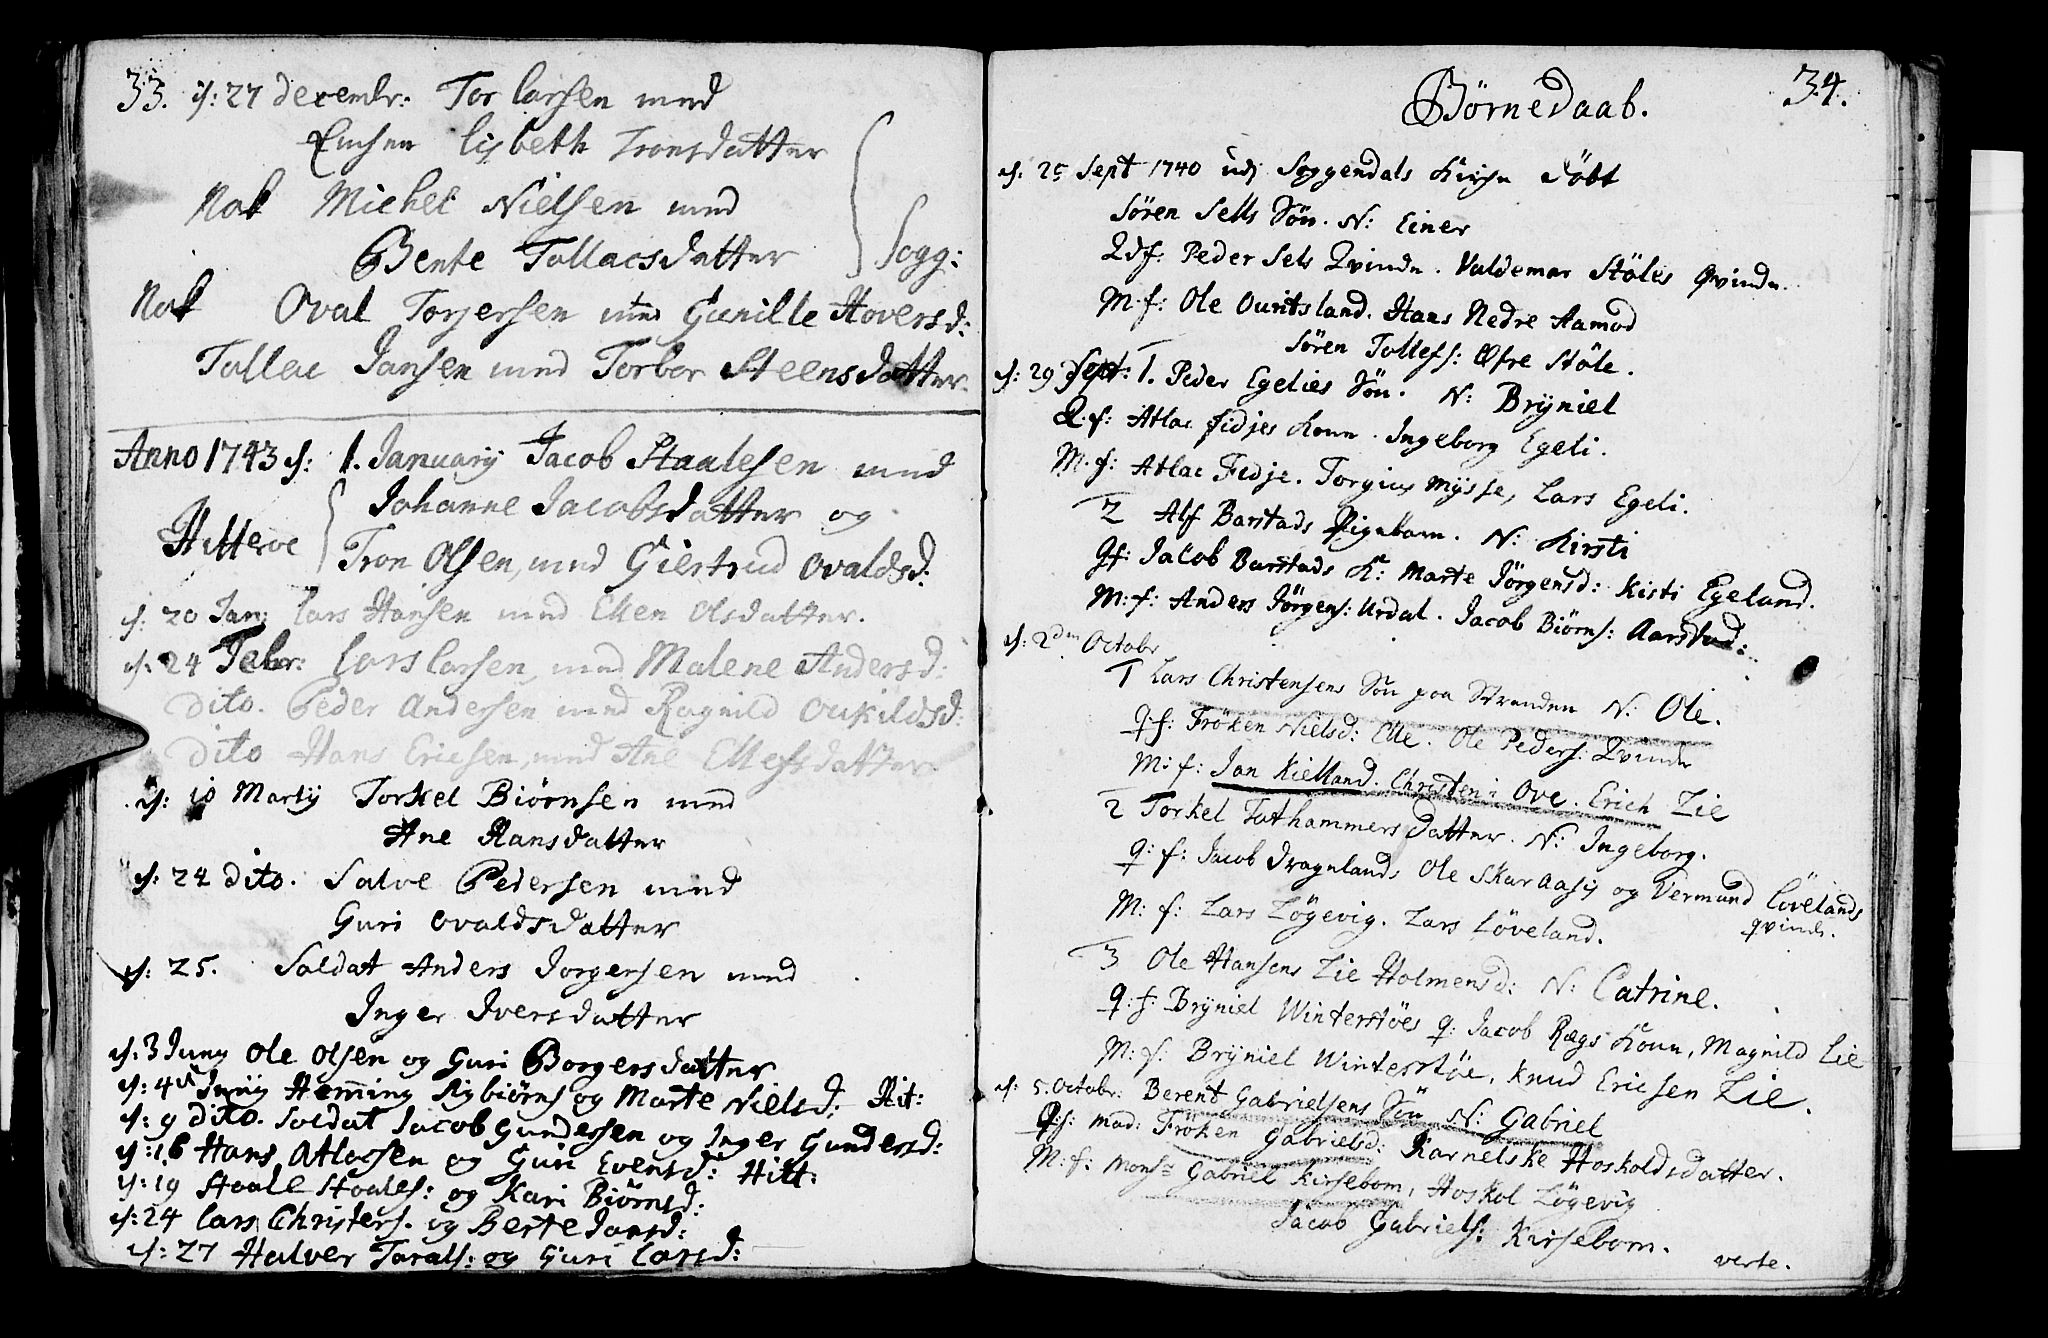 33. d: 27 decembr: Tor Larsen med
Enchen Lisbeth Tronsdatter
Nok Michel Nielsen med
Bente Tallacsdatter Sogg:
Nok Oval Torjersen med Gunille Hoversd:
Tallac Jansen med Torbor Steensdatter.
Anno 1743 d: 1. January Jacob Staalesen med
Johanne Jacobsdatter og
Hitterøe Tron Olsen, med Giertrud Ovaldsd:
d: 20 Jan: Lars Hansen med Ellen Olsdatter.
d: 24 Febr: Lars Larsen, med Malene Andersd:
Dito. Peder Andersen med Ragnild Oukildsd:
Dito Hans Ericsen, med Ane Ellefsdatter
d: 10 Martij Torkel Biørnsen med
Ane Hansdatter
d: 24 dito. Salve Pedersen med
Guri Ovaldsdatter
d: 25. Soldat Anders Jorgensen med
Inger Iversdatter
d: 3 Juny Ole Olsen og Guri Borgersdatter
d: 4de Junij Heming Sigbiørns og Marte Nielsd: Hit:
d: 9 dito. Soldat Jacob Gundersen og Inger Gundersd:
d: 16 Hans Atlacsen og Guri Evensd: Hitt:
d: 19 Staale Staales: og Kari Biørnsd:
d: 24 Lars Christens. og Berte Jansd:
d: 27 Halver Tarals: og Guri Larsd:
34.
Børnedaab.
d: 25 Sept 1740 udj Soggendals Kirche døbt
Sören Sells Sön. N: Einer
Qdf: Peder Sels Qvinde. Valdemar Stöles qvinde.
M.f: Ole Ouritsland. Hans Nedre Aamod
Sören Tollefs: Øfre Stöle.
d: 29 Sept: 1. Peder Egelies Sön. N: Bryniel
Q.f: Atlac Fidjes Kone. Ingeborg Egeli.
M.f: Atlac Fedje. Torgius Mysse, Lars Egeli.
2 Alf Barstads Pigebarn. N: Kirsti
Qf: Jacob Barstads K: Marte Jörgensd: Kisti Egeland.
M:f: Anders Jörgens: Urdal. Jacob Biörns: Aarstad:
d: 2den Octobr
1 Lars Christensens Sön paa Stranden N: Ole.
q.f: Fröken Nielsd: Elle. Ole Peders: Qvinde
M:f: Jan Kielland. Christen: Ove. Erich Lie
2 Torkel Tothammers Datter. N: Ingeborg.
q:f: Jacob Dragelands Ole Skaraasis og Vermund Lövelands
qvinde.
M:f: Lars Lögevig. Lars Löveland.
3 Ole Hansens Lie Holmensd: N: Catrine.
q:f: Bryniel Winterstöes q: Jacob Rægs Kone, Magnild Lie
M:f: Bryniel Winterstöe, Knud Ericsen Lie.
d: 5. Octobr: Berent Gabrielsens Sön N: Gabriel
Qf: mad: Fröken Gabrielsd: Karnelske Hoskoldsdatter.
M:f: Monsr Gabriel Kirsebom, Hoskol Lögevig
Jacob Gabriels: Kirsebom.
verte.